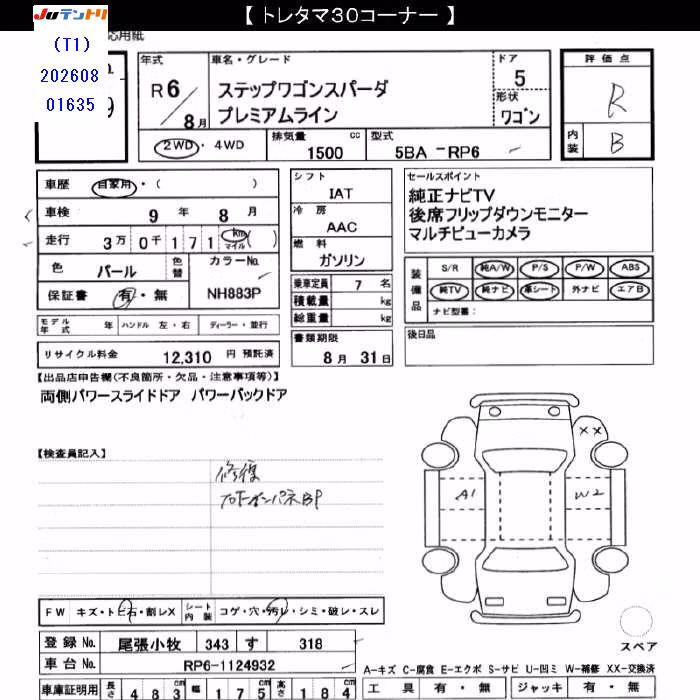 【 トレタマ30コーナー 】
JUテントリ
応用紙
(T1)
202608
01635
年式
R6/8月
車名・グレード
ステップワゴンスパーダ
プレミアムライン
ドア
5
形状
ワゴン
評価点
R
内装
B
2WD・4WD
排気量
1500 cc
型式
5BA -RP6
車歴
自家用・( )
車検
9 年 8 月
走行
3万0千171 km マイル ( )
色
パール
色替
カラーNo.
NH883P
保証書
有・無
シフト
IAT
冷房
AAC
燃料
ガソリン
乗車定員 7 名
積載量 kg
総重量 kg
書類期限
8月 31日
セールスポイント
純正ナビTV
後席フリップダウンモニター
マルチビューカメラ
装備品
S/R 純A/W P/S P/W ABS
純TV 純ナビ 革シート 外ナビ エアB
ナビ型番:
後日品
モデル年式 年 ハンドル 左・右 ディーラー・並行
リサイクル料金 12,310 円 預託済
【出品店申告欄(不良箇所・欠品・注意事項等)】
両側パワースライドドア パワーバックドア
【検査員記入】
修復
A1
W2
XX
FW キズ・トビ石・割レX
シート内装 コゲ・穴・汚レ・シミ・破レ・スレ
登録 No. 尾張小牧 343 す 318
車台 No. RP6-1124932
車庫証明用 長さ 483 cm 幅 175 cm 高さ 184 cm
スペア
A-キズ C-腐食 E-エクボ S-サビ U-凹ミ W-補修 XX-交換済
工具 有・無 ジャッキ 有・無